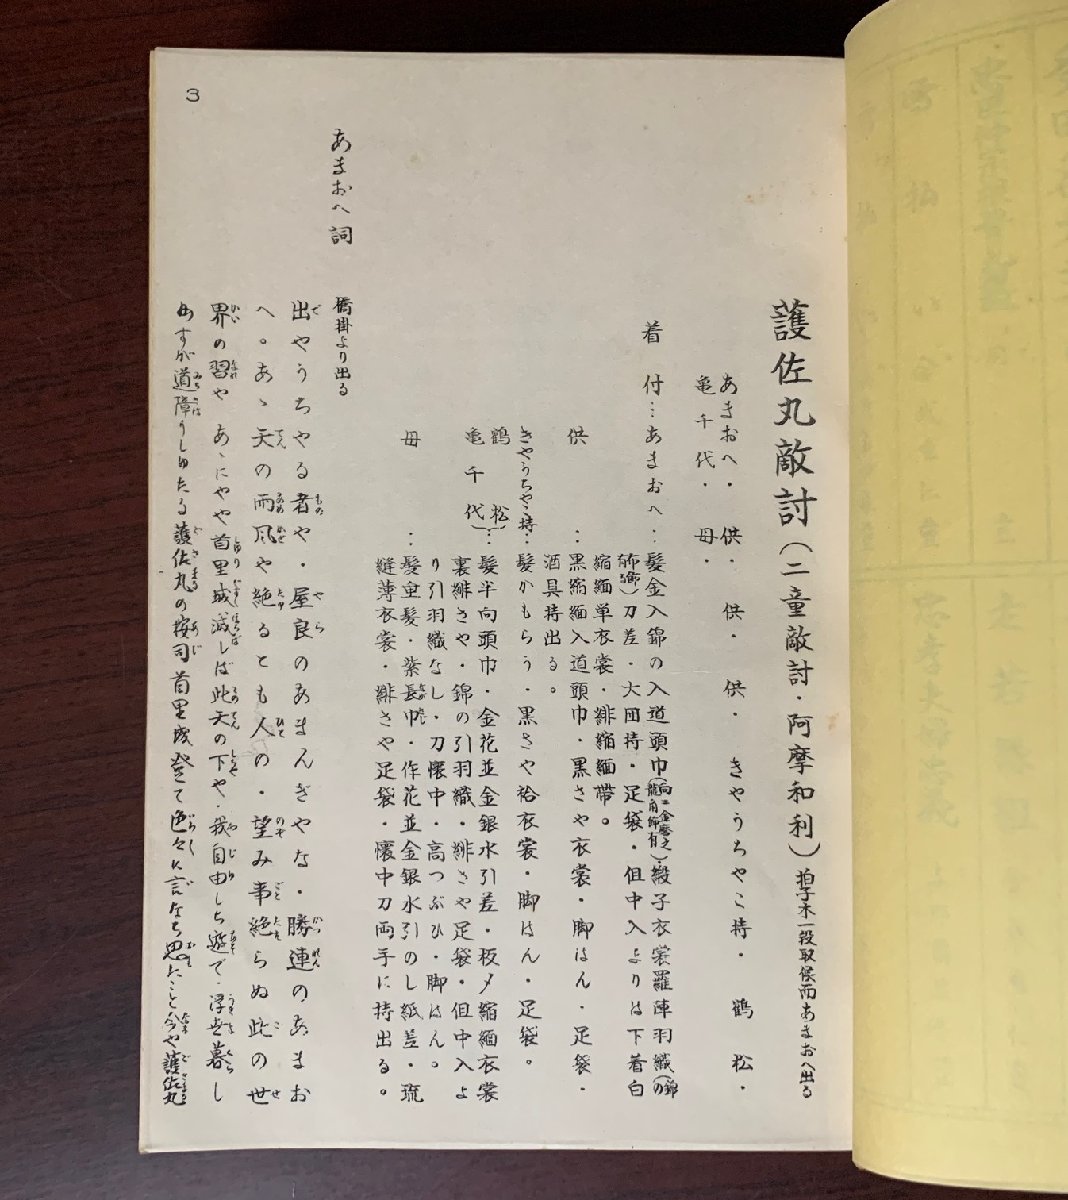 護佐丸敵討(二童敵討・阿摩和利)拍子木一段取候而あまおへ出る
あまおへ・供・供・供・きやうちやこ持・鶴松・
亀千代・母・
着付…あまおへ…髪金入錦の入道頭巾(向ニ金磨之龍角飾有)、緞子衣裳羅陣羽織(錦の
飾)刀差・大団持・足袋・但中入よりは下着白
縮緬単衣裳・緋縮緬帯。
供…黒縮緬入道頭巾・黒さや衣裳・脚はん・足袋・
酒具持出る。
きやうちやこ持…髪かもらう・黒さや袷衣裳・脚はん・足袋。
鶴松
亀千代…髪半向頭巾・金花並金銀水引差・板〆縮緬衣裳
裏緋さや・錦の引羽織・緋さや足袋・但中入よ
り引羽織なし・刀懐中・高つぶひ・脚はん。
母…髪垂髪・紫長巾・作花並金銀水引のし紙差・琉
縫薄衣裳・緋さや足袋・懐中刀両手に持出る。
橋掛より出る
あまおへ詞
出やうちやる者や・屋良のあまんぎやな・勝連のあまお
へ。あゝ天の雨風や絶るとも人の・望み事絶らぬ此の世
界の習や あゝにやや首里城滅しば此天の下や・我自由しち遊て・浮世暮し
めすが道障りしゆたる護佐丸の按司首里城登て色々に言なち
今や護佐丸
3